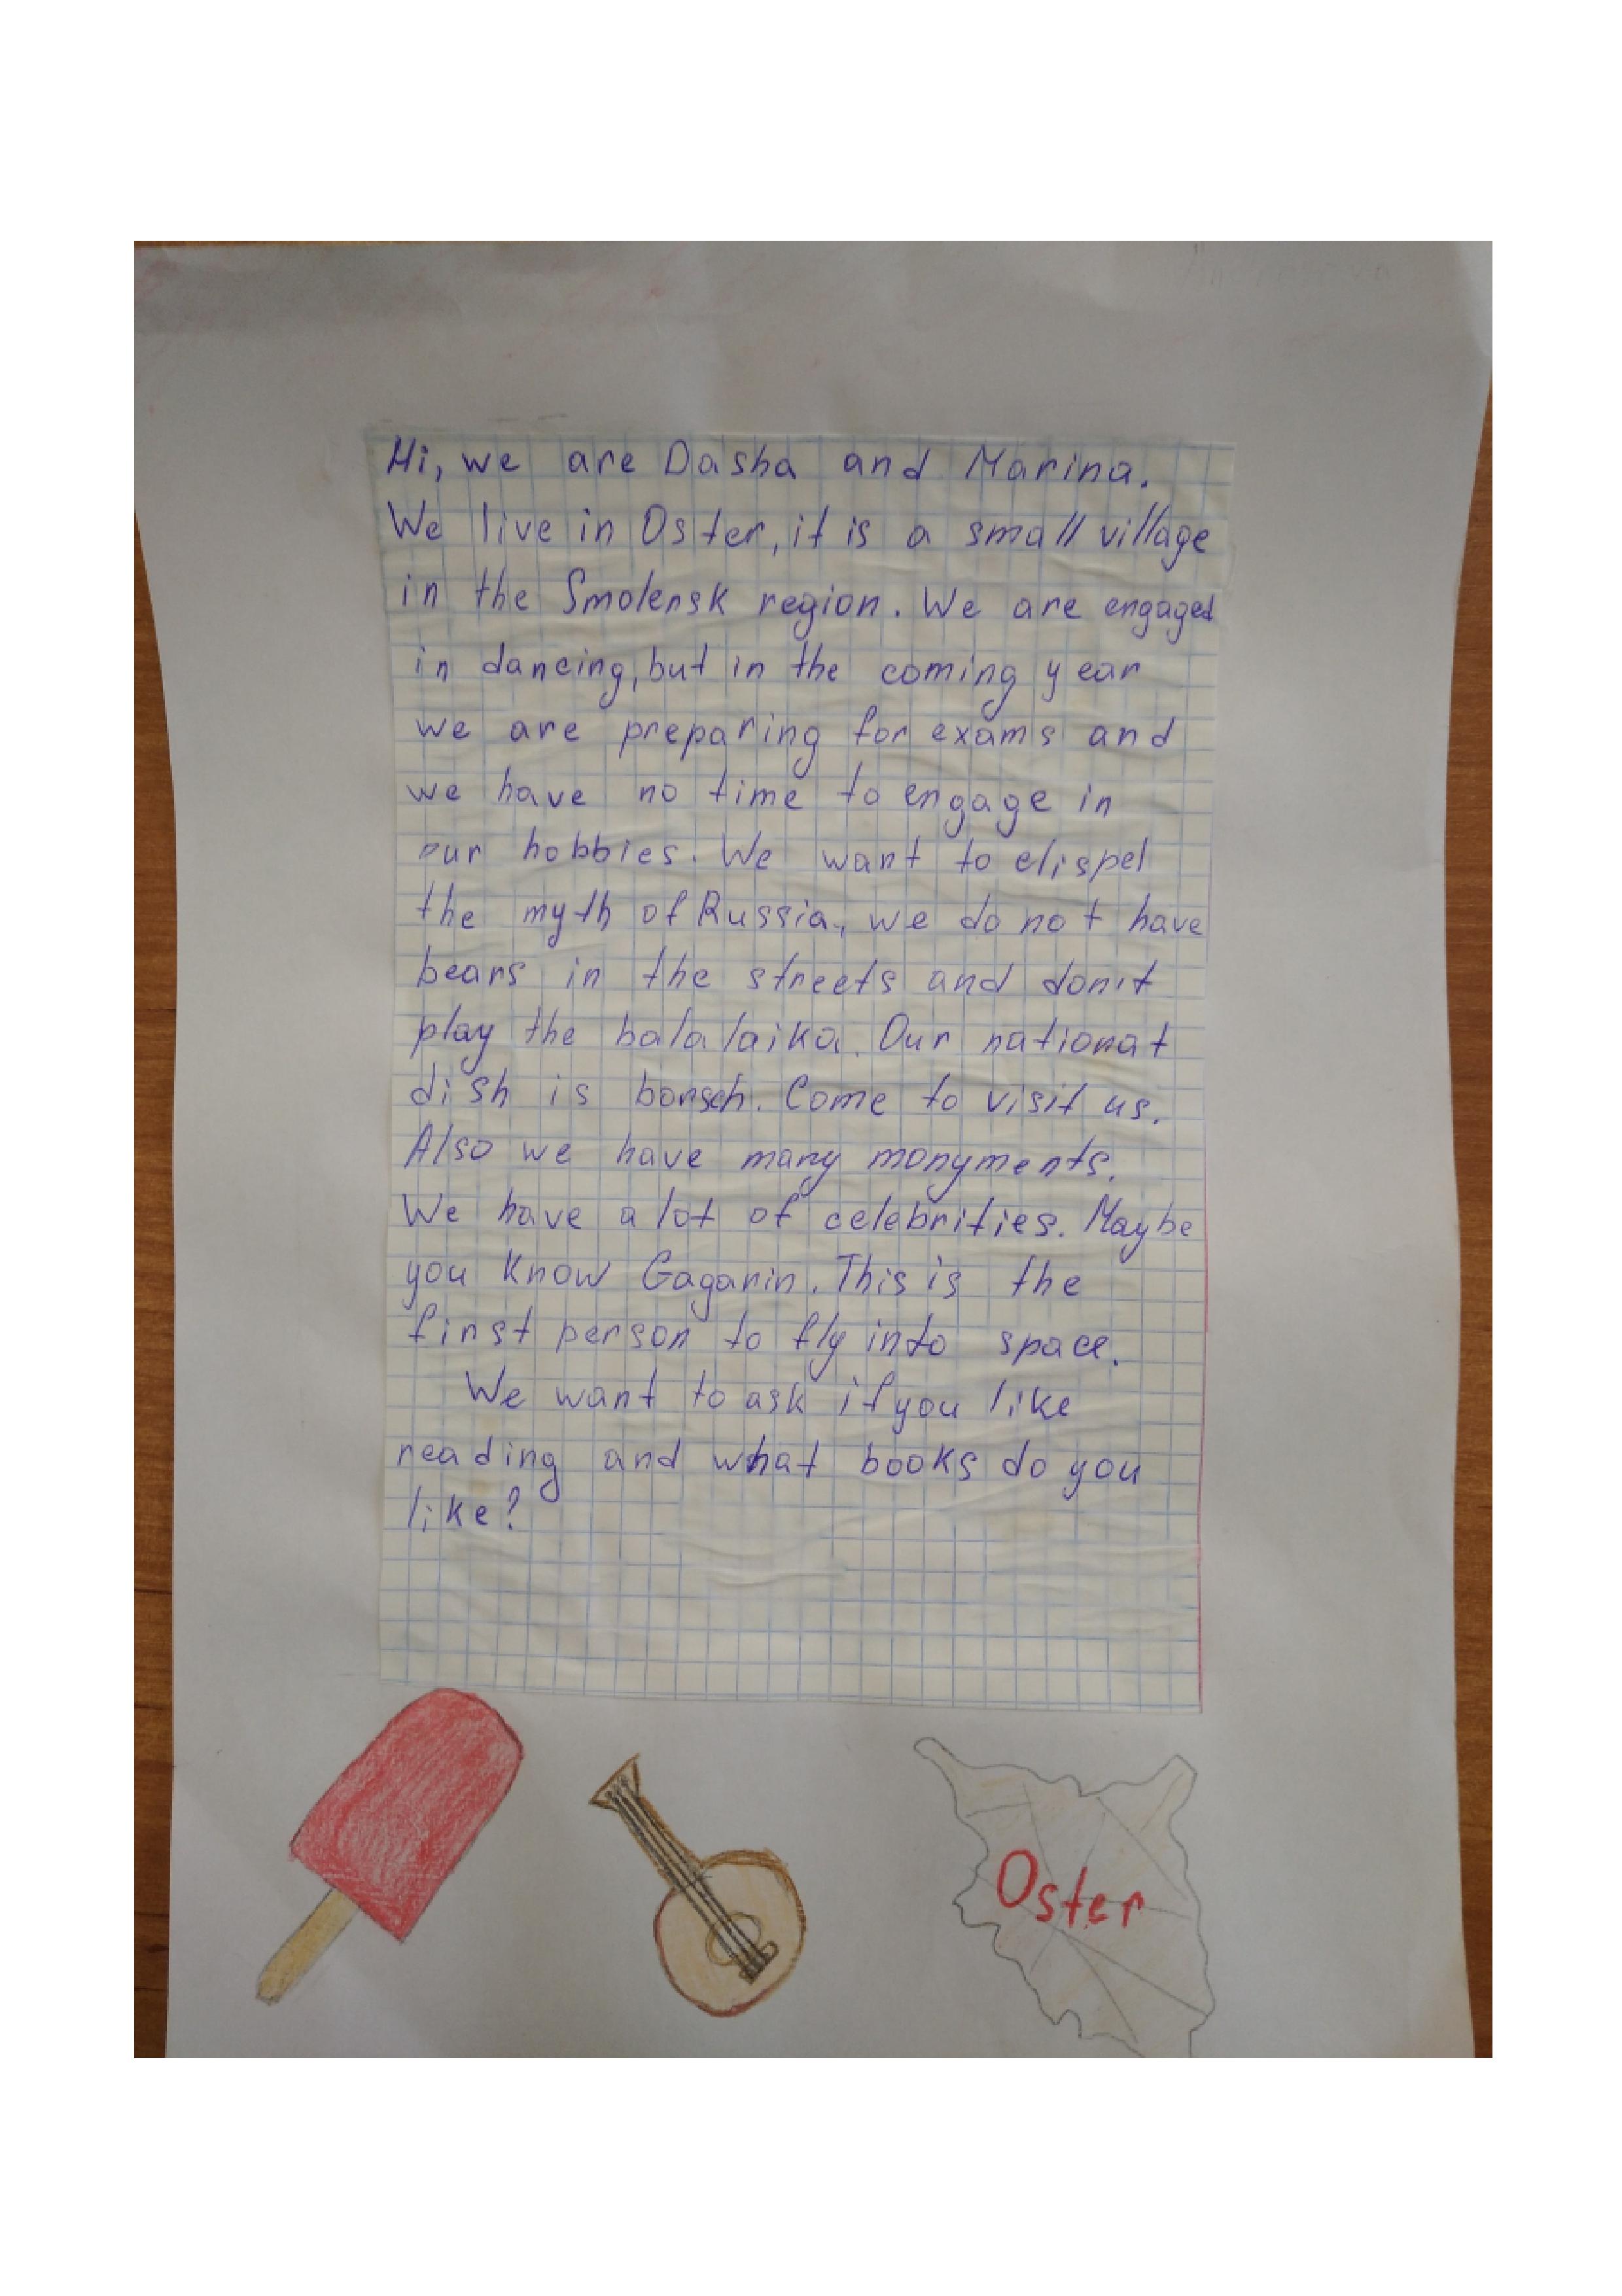 Hi, we are Dasha and Marina.
We live in Oster, it is a small village
in the Smolensk region. We are engaged
in dancing, but in the coming year
we are preparing for exams and
we have no time to engage in
our hobbies. We want to dispel
the myth of Russia, we do not have
bears in the streets and don't
play the balalaika. Our national
dish is borsch. Come to visit us.
Also we have many monyments.
We have a lot of celebrities. Maybe
you know Gagarin. This is the
first person to fly into space.
We want to ask if you like
reading and what books do you
like?
Oster